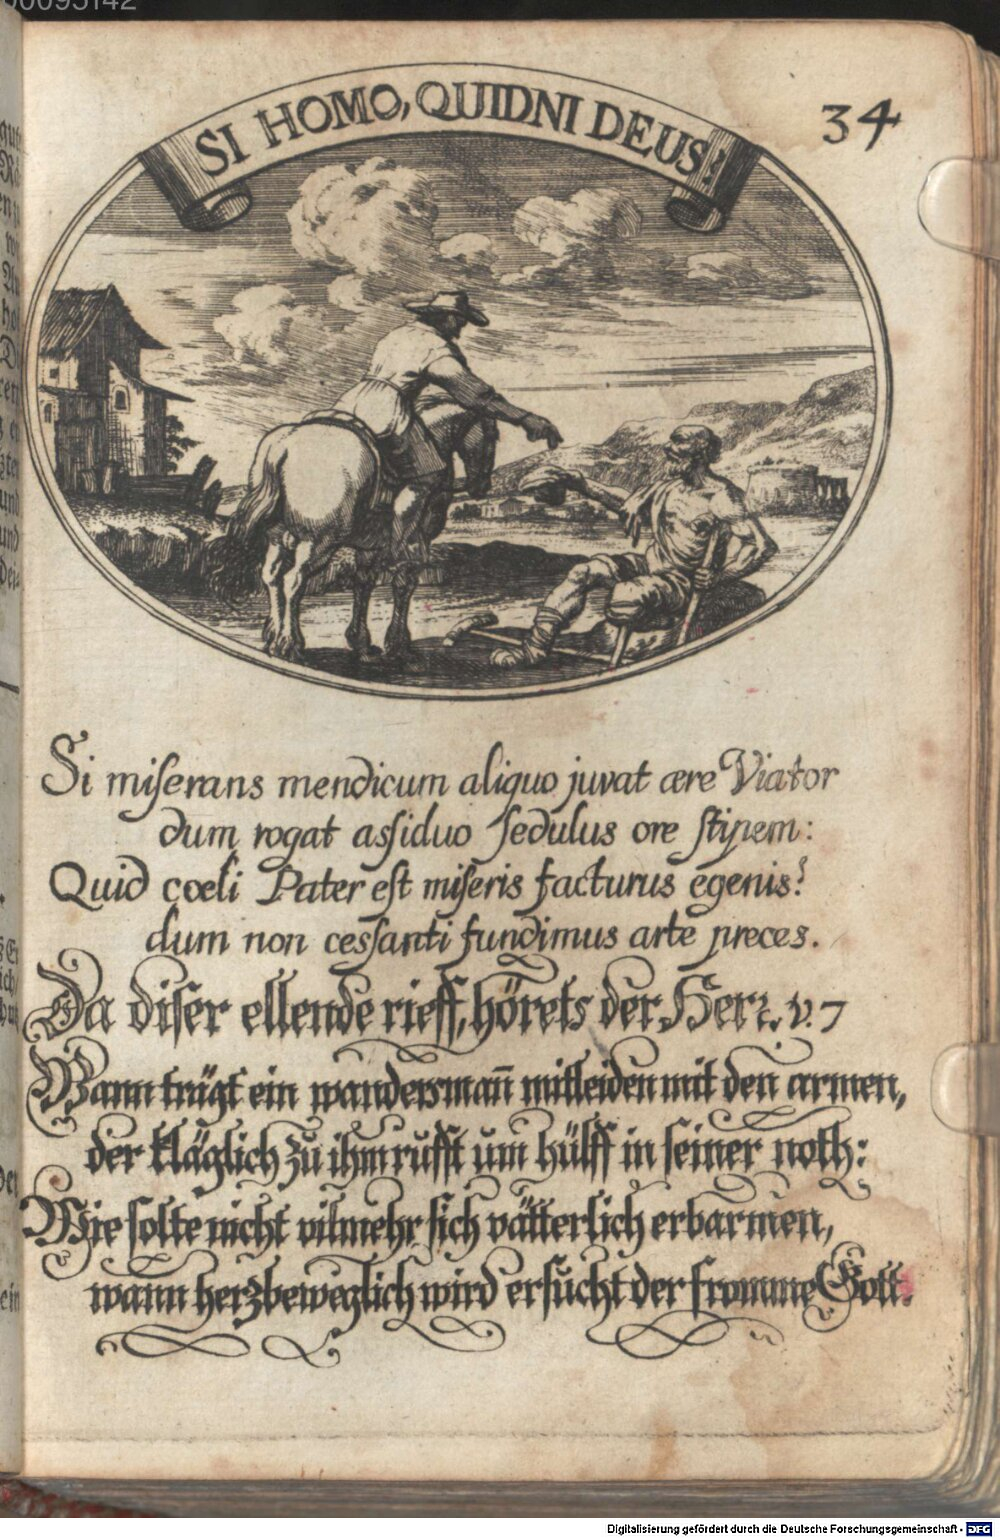 00095142
SI HOMO, QUIDNI DEUS?
34
Si miſerans mendicum aliquo juvat ære Viator
dum rogat aſſiduo ſedulus ore ſtipem:
Quid cœli Pater eſt miſeris facturus egenis?
dum non ceſſanti fundimus arte preces.
Da diſer ellende rieff, hörets der Herr. v. 7
Wann trägt ein wandersman̄ mitleiden mit den armen,
der kläglich zu ihm rufft um hülff in ſeiner noth:
Wie ſolte nicht vilmehr ſich vätterlich erbarmen,
wann herzbeweglich wird erſucht der fromme Gott.
Digitalisierung gefördert durch die Deutsche Forschungsgemeinschaft - DFG